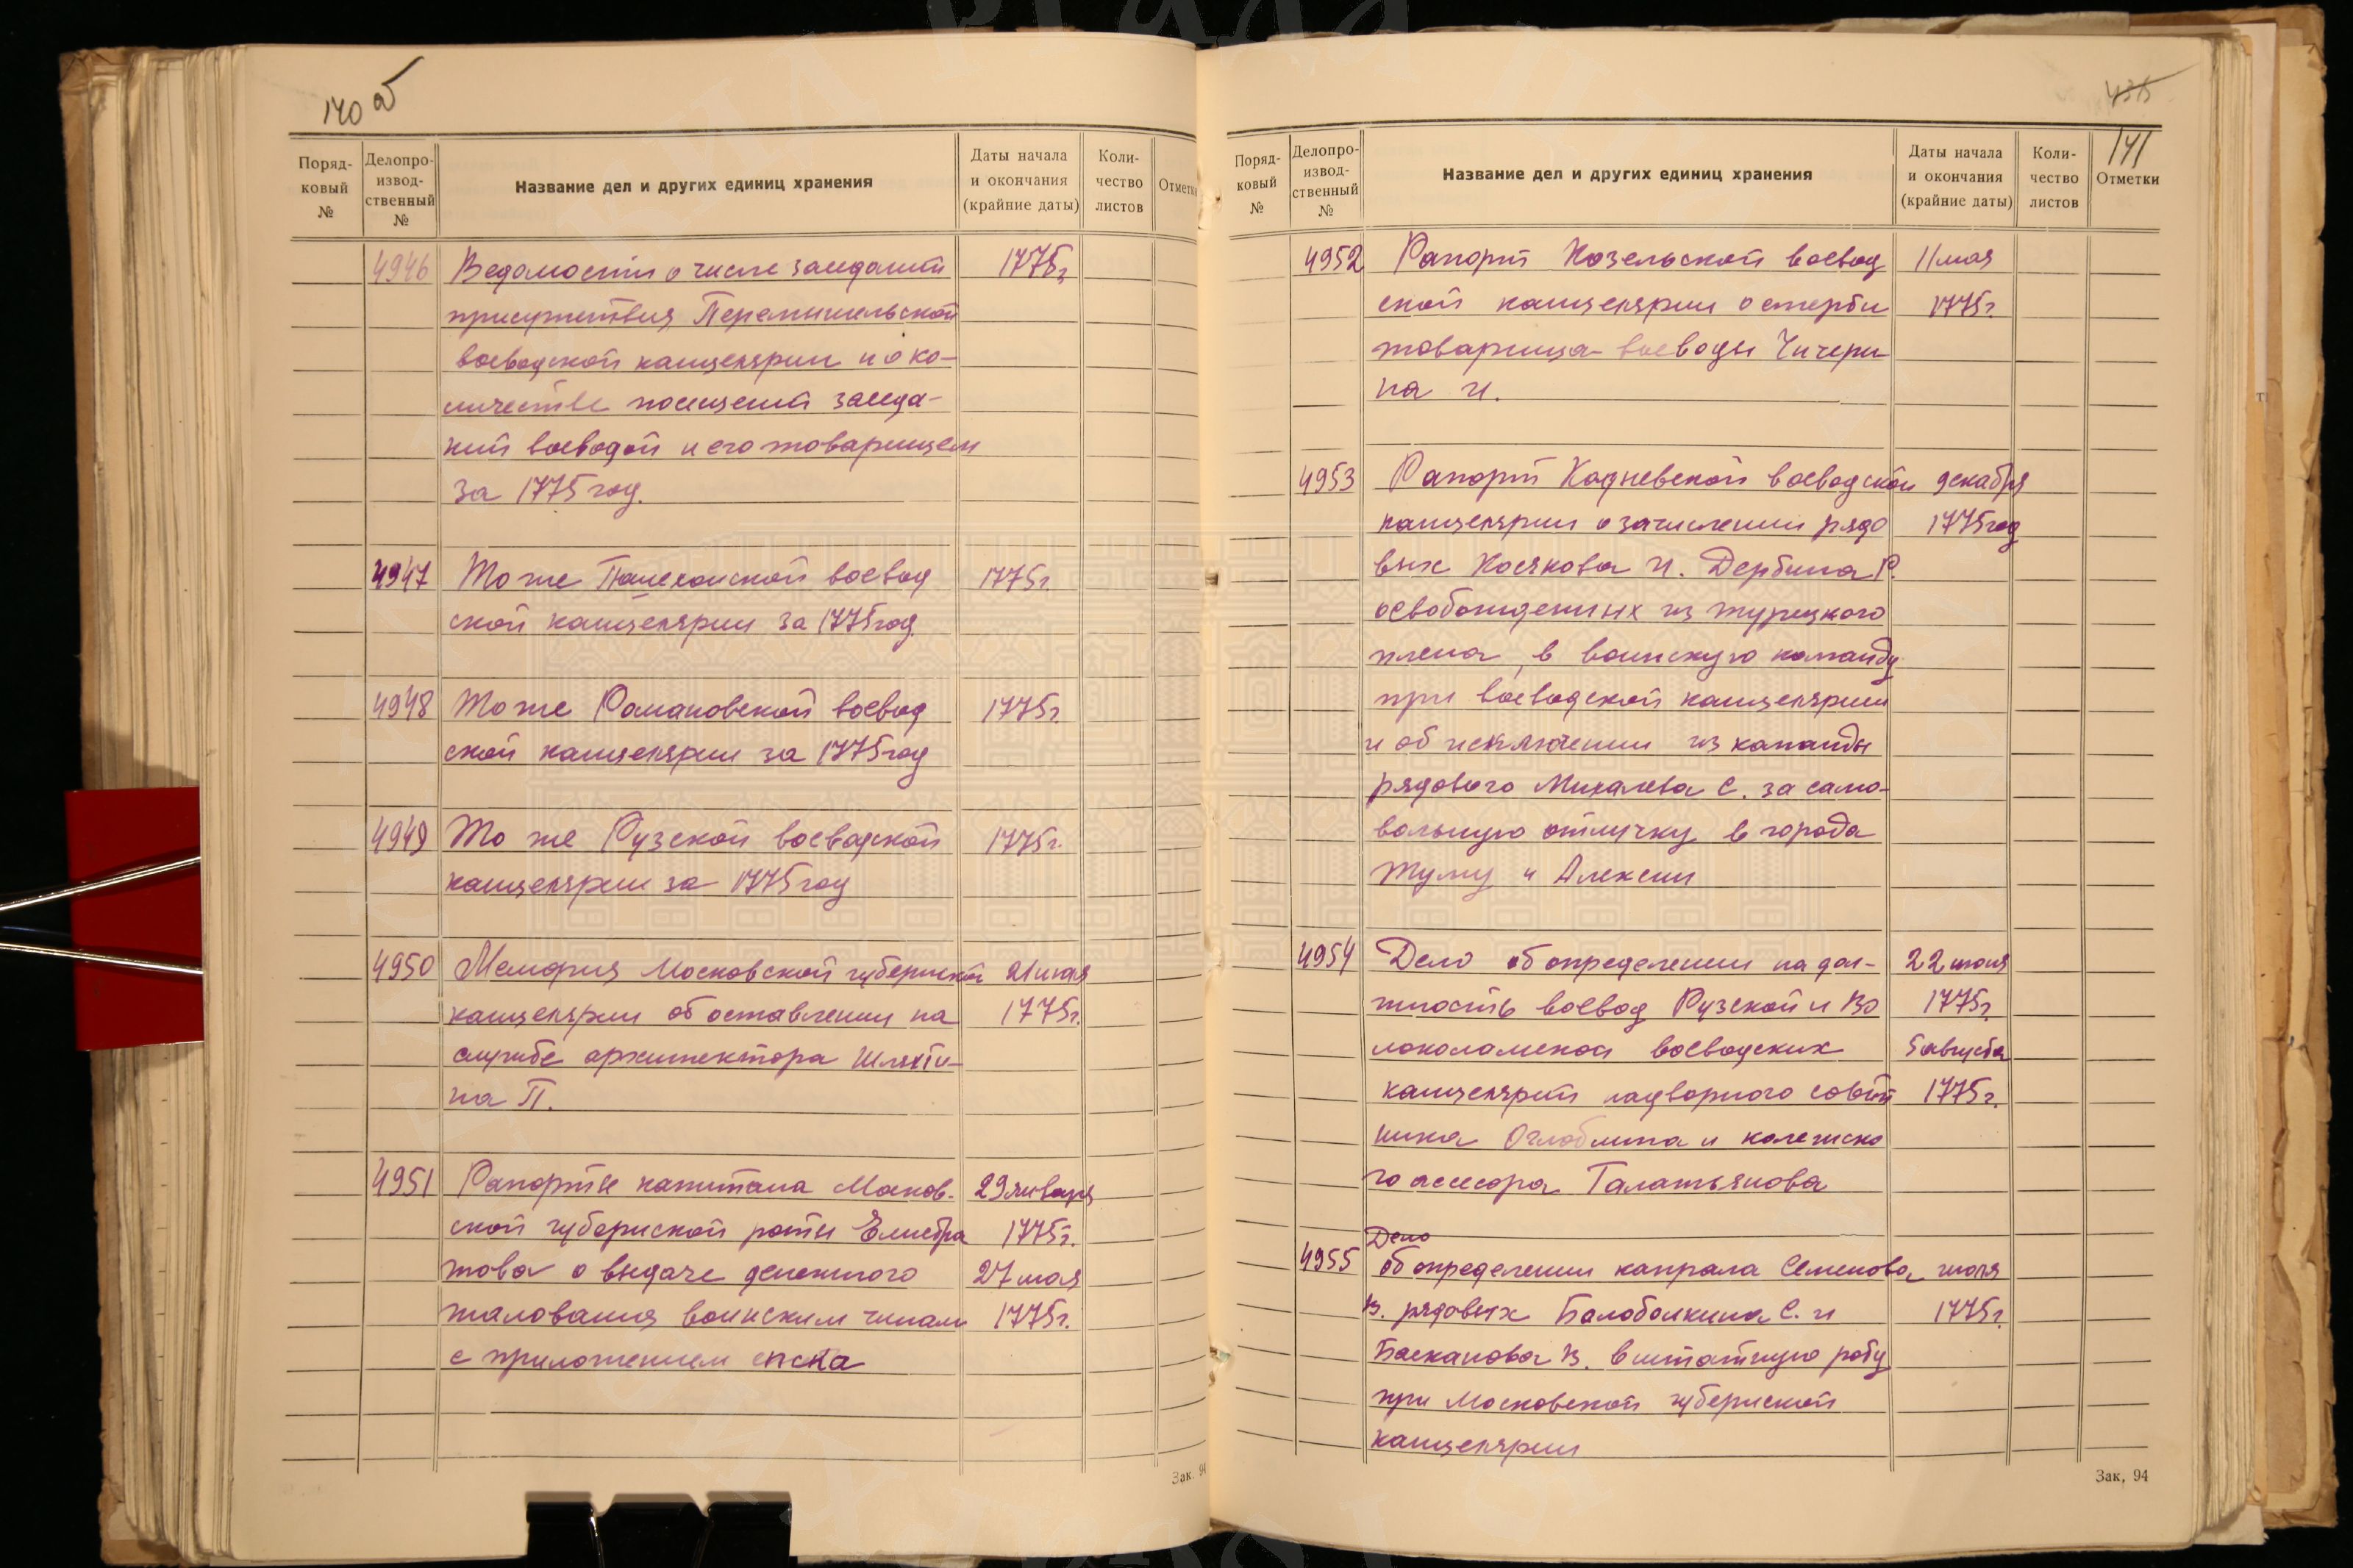 140 об
Поряд-
ковый
№
Делопро-
извод-
ственный
№
Название дел и других единиц хранения
Даты начала
и окончания
(крайние даты)
Коли-
чество
листов
Отметки
4946 Ведомости о числе заседаний 1775г.
присутствия Перемышльской
воеводской канцелярии и о ко-
личестве посещений заседа-
ний воеводой и его товарищем
за 1775 год.
4947 То же Пошехонской воевод 1775г.
ской канцелярии за 1775 год.
4948 То же Романовской воевод 1775г
ской канцелярии за 1775 год
4949 То же Рузской воеводской 1775г.
канцелярии за 1775 год
4950 Мемория Московской губернской
канцелярии об оставлении на 1775г.
службе архитектора
на П.
4951 Рапорты капитана Москов- 29 января
ской губернской роты 1775г.
това о выдаче денежного 27 мая
жалования воинским чинам 1775г.
с приложением списка
Зак. 94
435
141
Поряд-
ковый
№
Делопро-
извод-
ственный
№
Название дел и других единиц хранения
Даты начала
и окончания
(крайние даты)
Коли-
чество
листов
Отметки
4952 Рапорт Козельской воевод 11 мая
ской канцелярии о смерти 1775г.
товарища воеводы Чичери
на И.
4953 Рапорт воеводской декабря
канцелярии о зачислении рядо 1775 год
вых Косякова И. Дербина Р.
освобожденных из турецкого
плена, в воинскую команду
при воеводской канцелярии
и об исключении из команды
рядового Михалева С. за само-
вольную отлучку в города
Тулу и Алексин
4954 Дело об определении на дол- 22 июля
жность воевод Рузской и Во 1775г.
локоламской воеводских 5 августа
канцелярий надворного совет 1775г.
ника Оглоблина и колежско
го асесора Галатьянова
Дело
4955 об определении капрала Семенова июля
В. рядовых Балоболкина С. и 1775г.
Басканова В. в штатную роту
при Московской губернской
канцелярии
Зак. 94